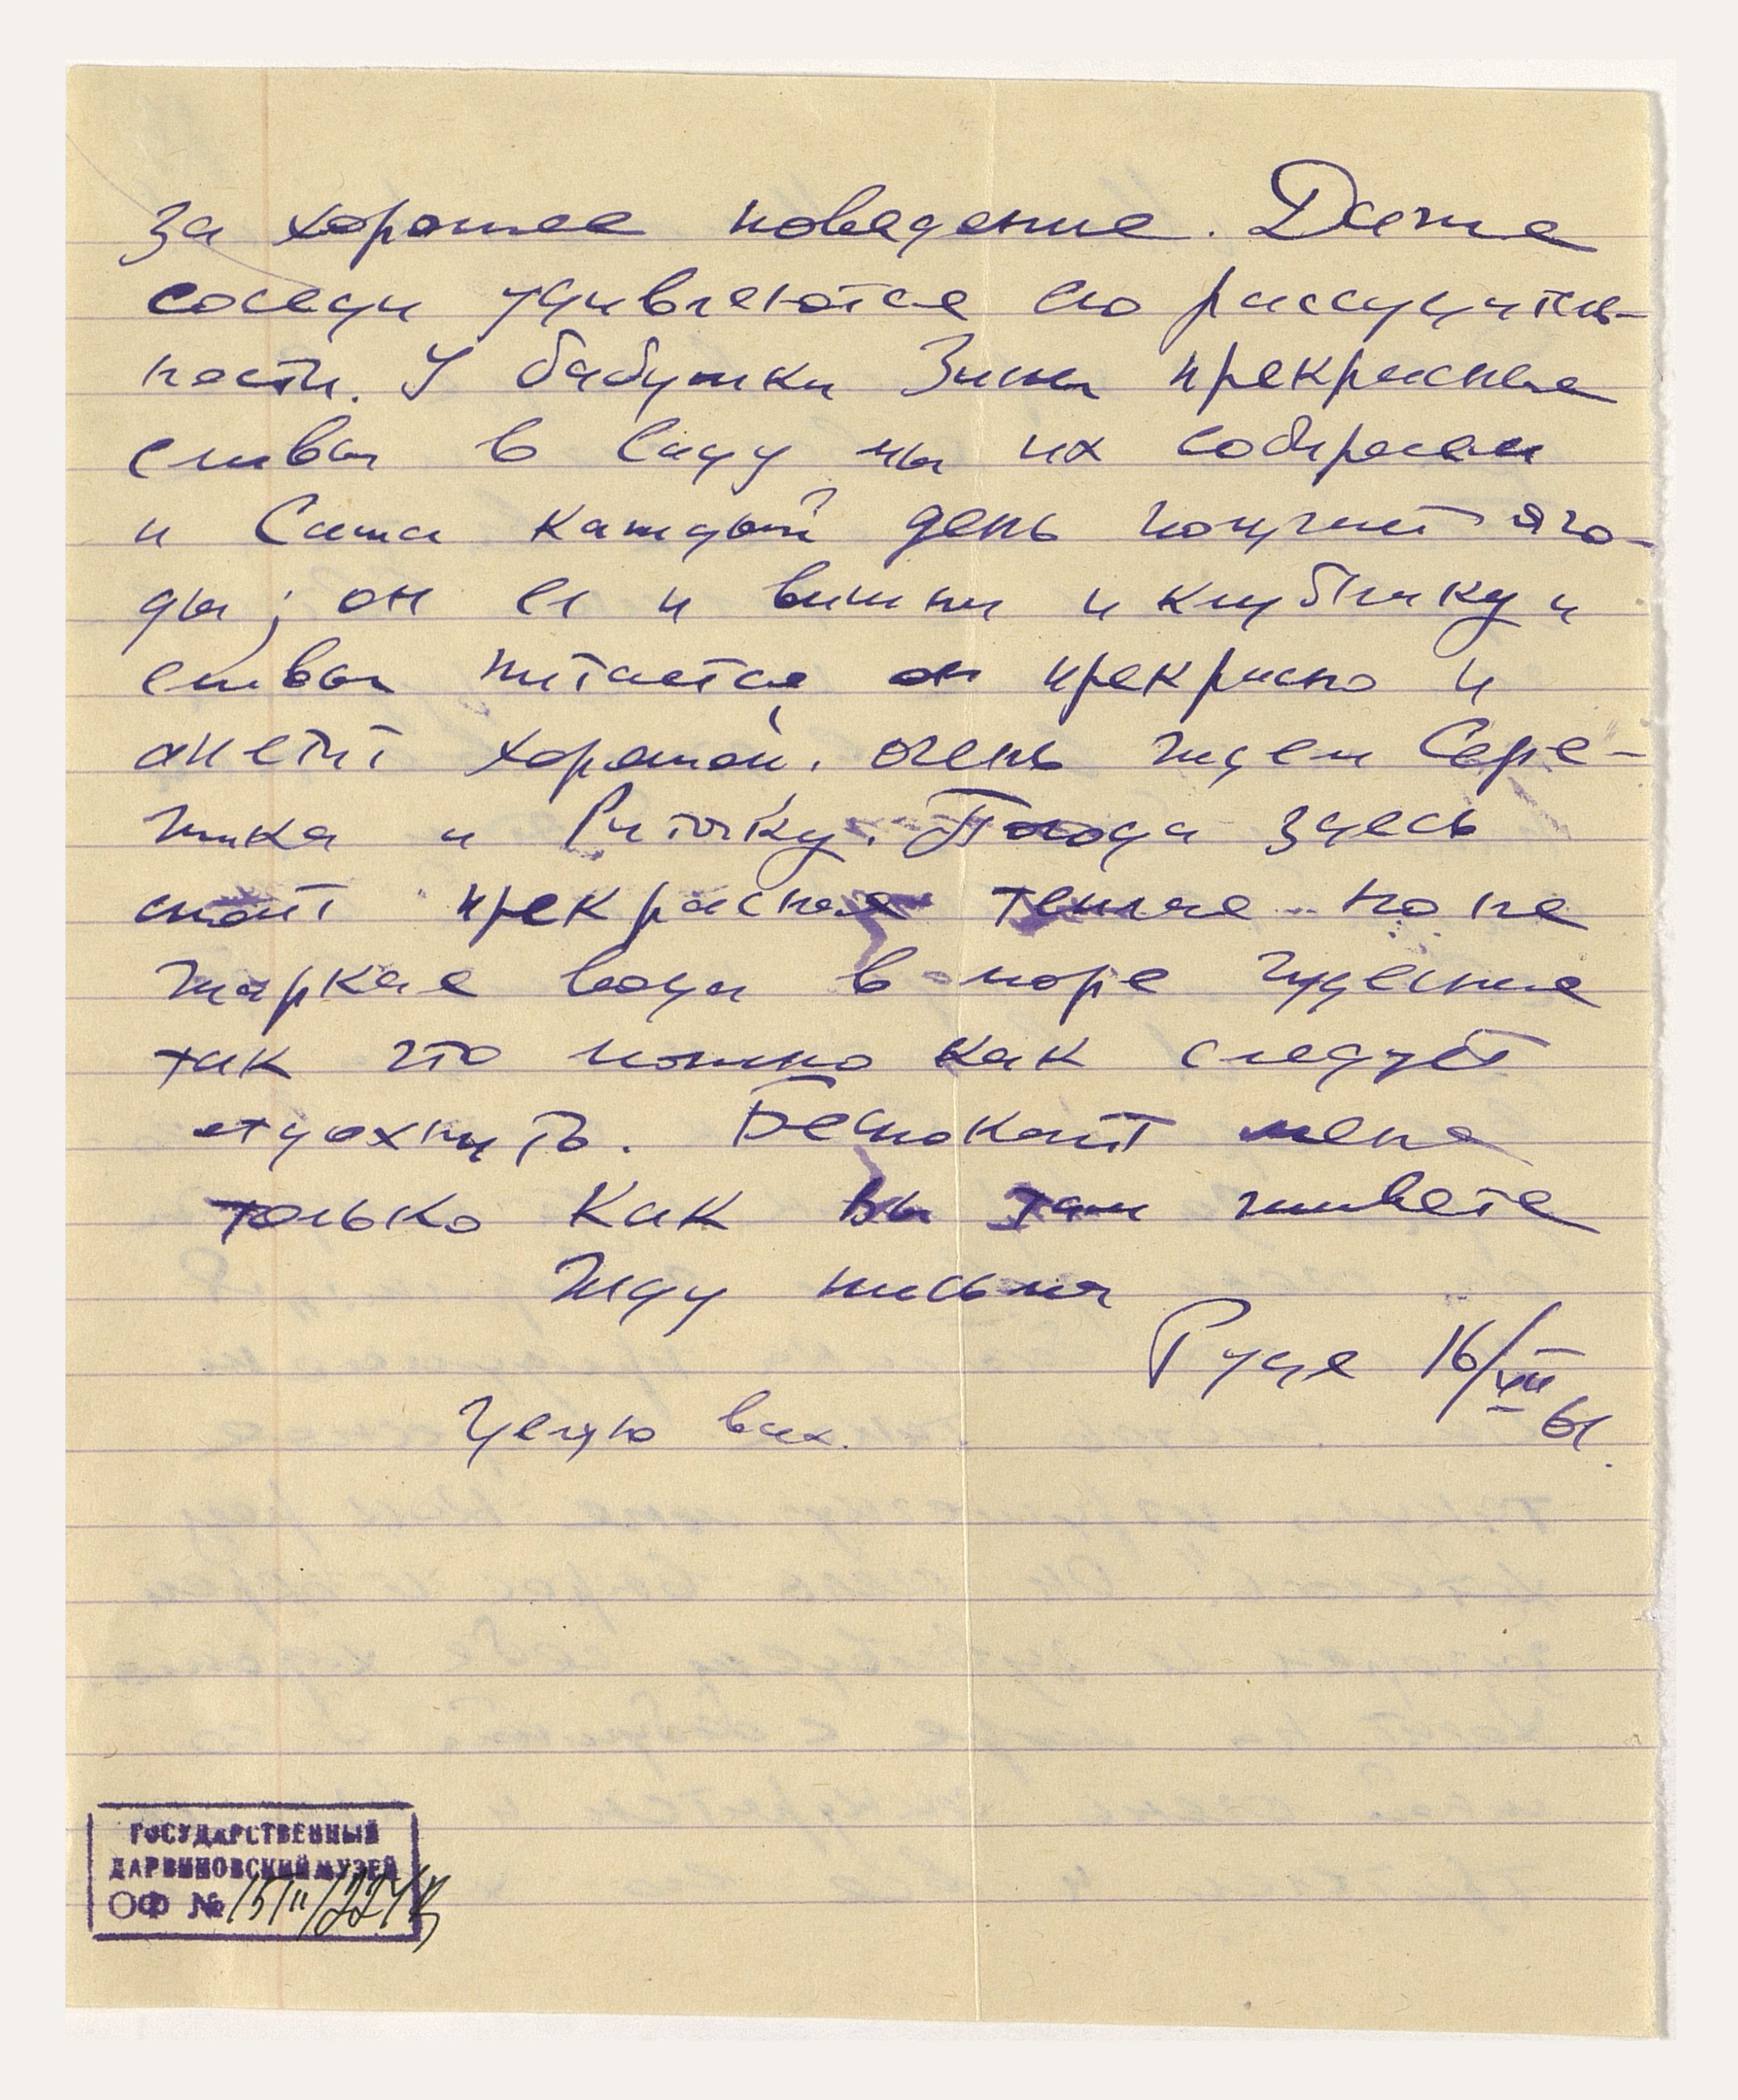 за хорошее поведение. Даже
соседи удивляются его рассудитель-
ности. У бабушки Зины прекрасные
сливы в саду мы их собираем
и Саша каждый день получает яго-
ды; он ел и вишни и клубнику и
сливы питается он прекрасно и
апетит хороший. очень ждем Сере-
жика и Риточку. Погода здесь
стоит прекрасная теплая но не
жаркая вода в море чудесная
так что можно как следует
отдохнуть. Беспокоит меня
только как вы там живете
Жду письма
Рудя 16/VIII
61.
Целую вас.
ГОСУДАРСТВЕННЫЙ
ДАРВИНОВСКИЙ МУЗЕЙ
ОФ №